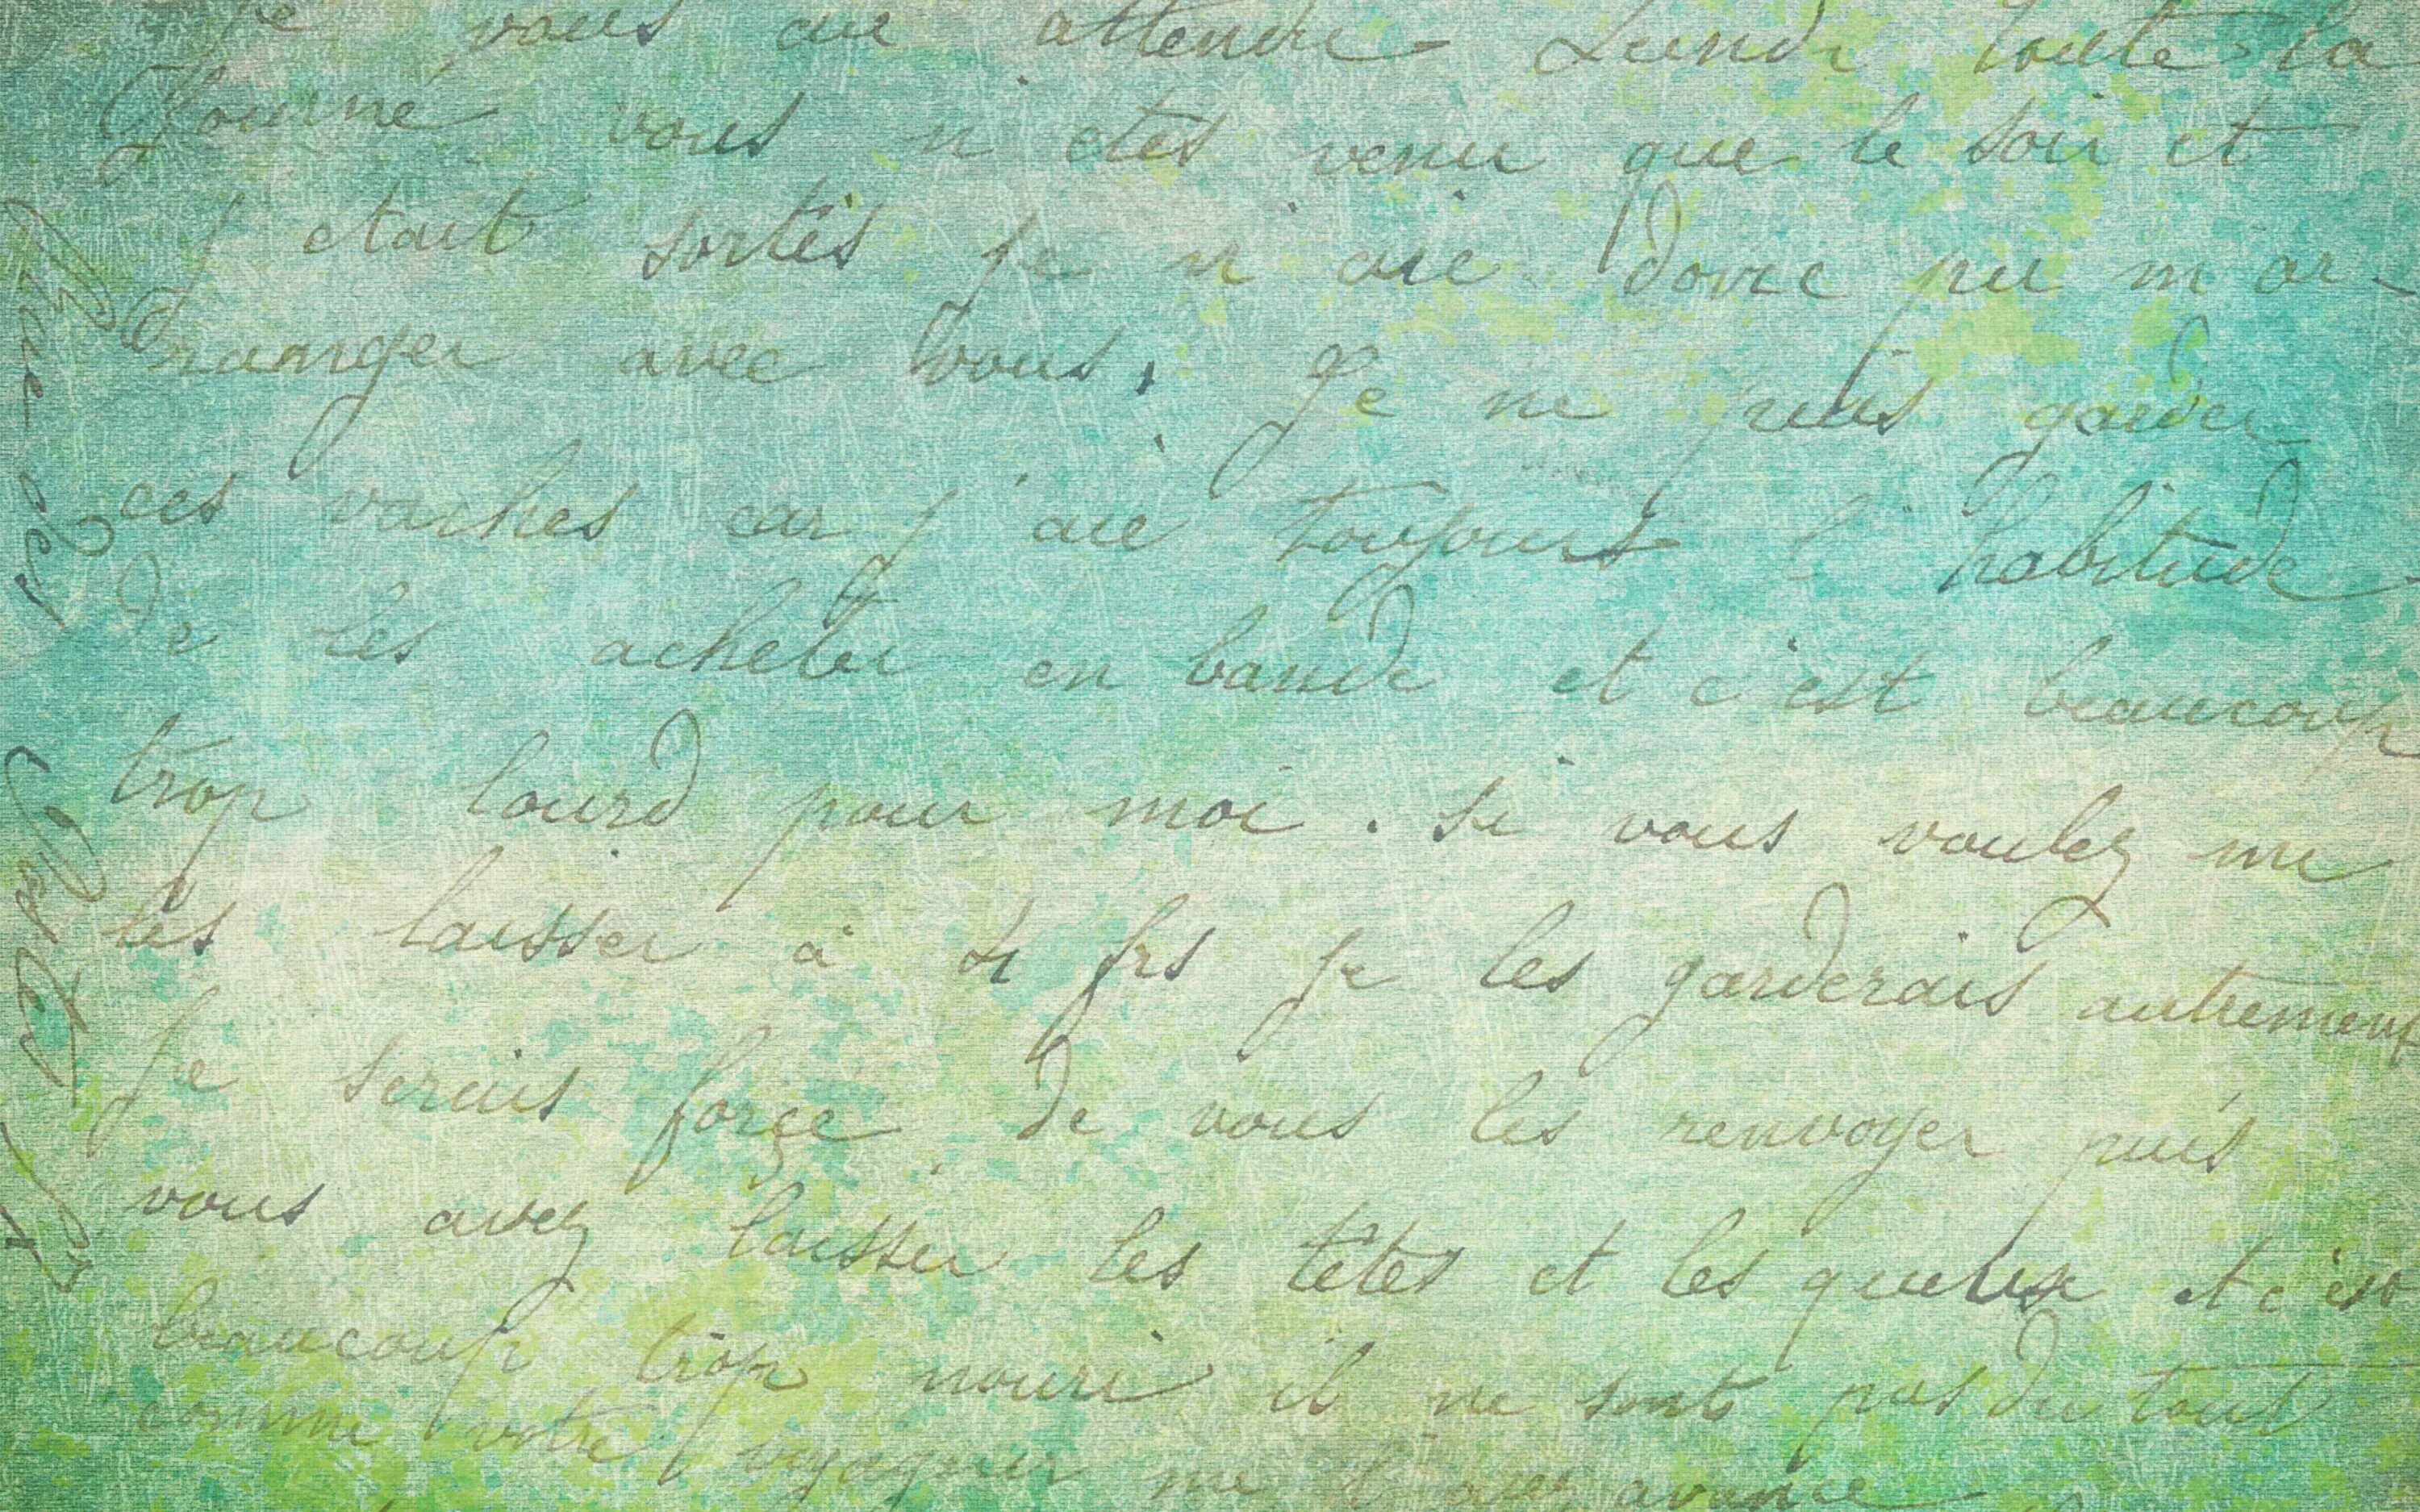 Je vous aie attendu Lundi toute la
Journé vous n'etes venu que le soir et
j'etait sortis je n'aie donc pu m'ar-
ranger avec vous. Je ne puis garder
ces vaches car j'aie toujours l'habitude
de les acheter en bande et c'est beaucoup
trop lourd pour moi. si vous voulez me
les laisser à frs je les garderais autrement
Je serais forçe de vous les renvoyer puis
vous avez laisser les tetes et les queux et c'est
beaucoup trop nouri il ne sont pas du tout
comme votre voyageur me l'avez avancé
Rue des
Postes